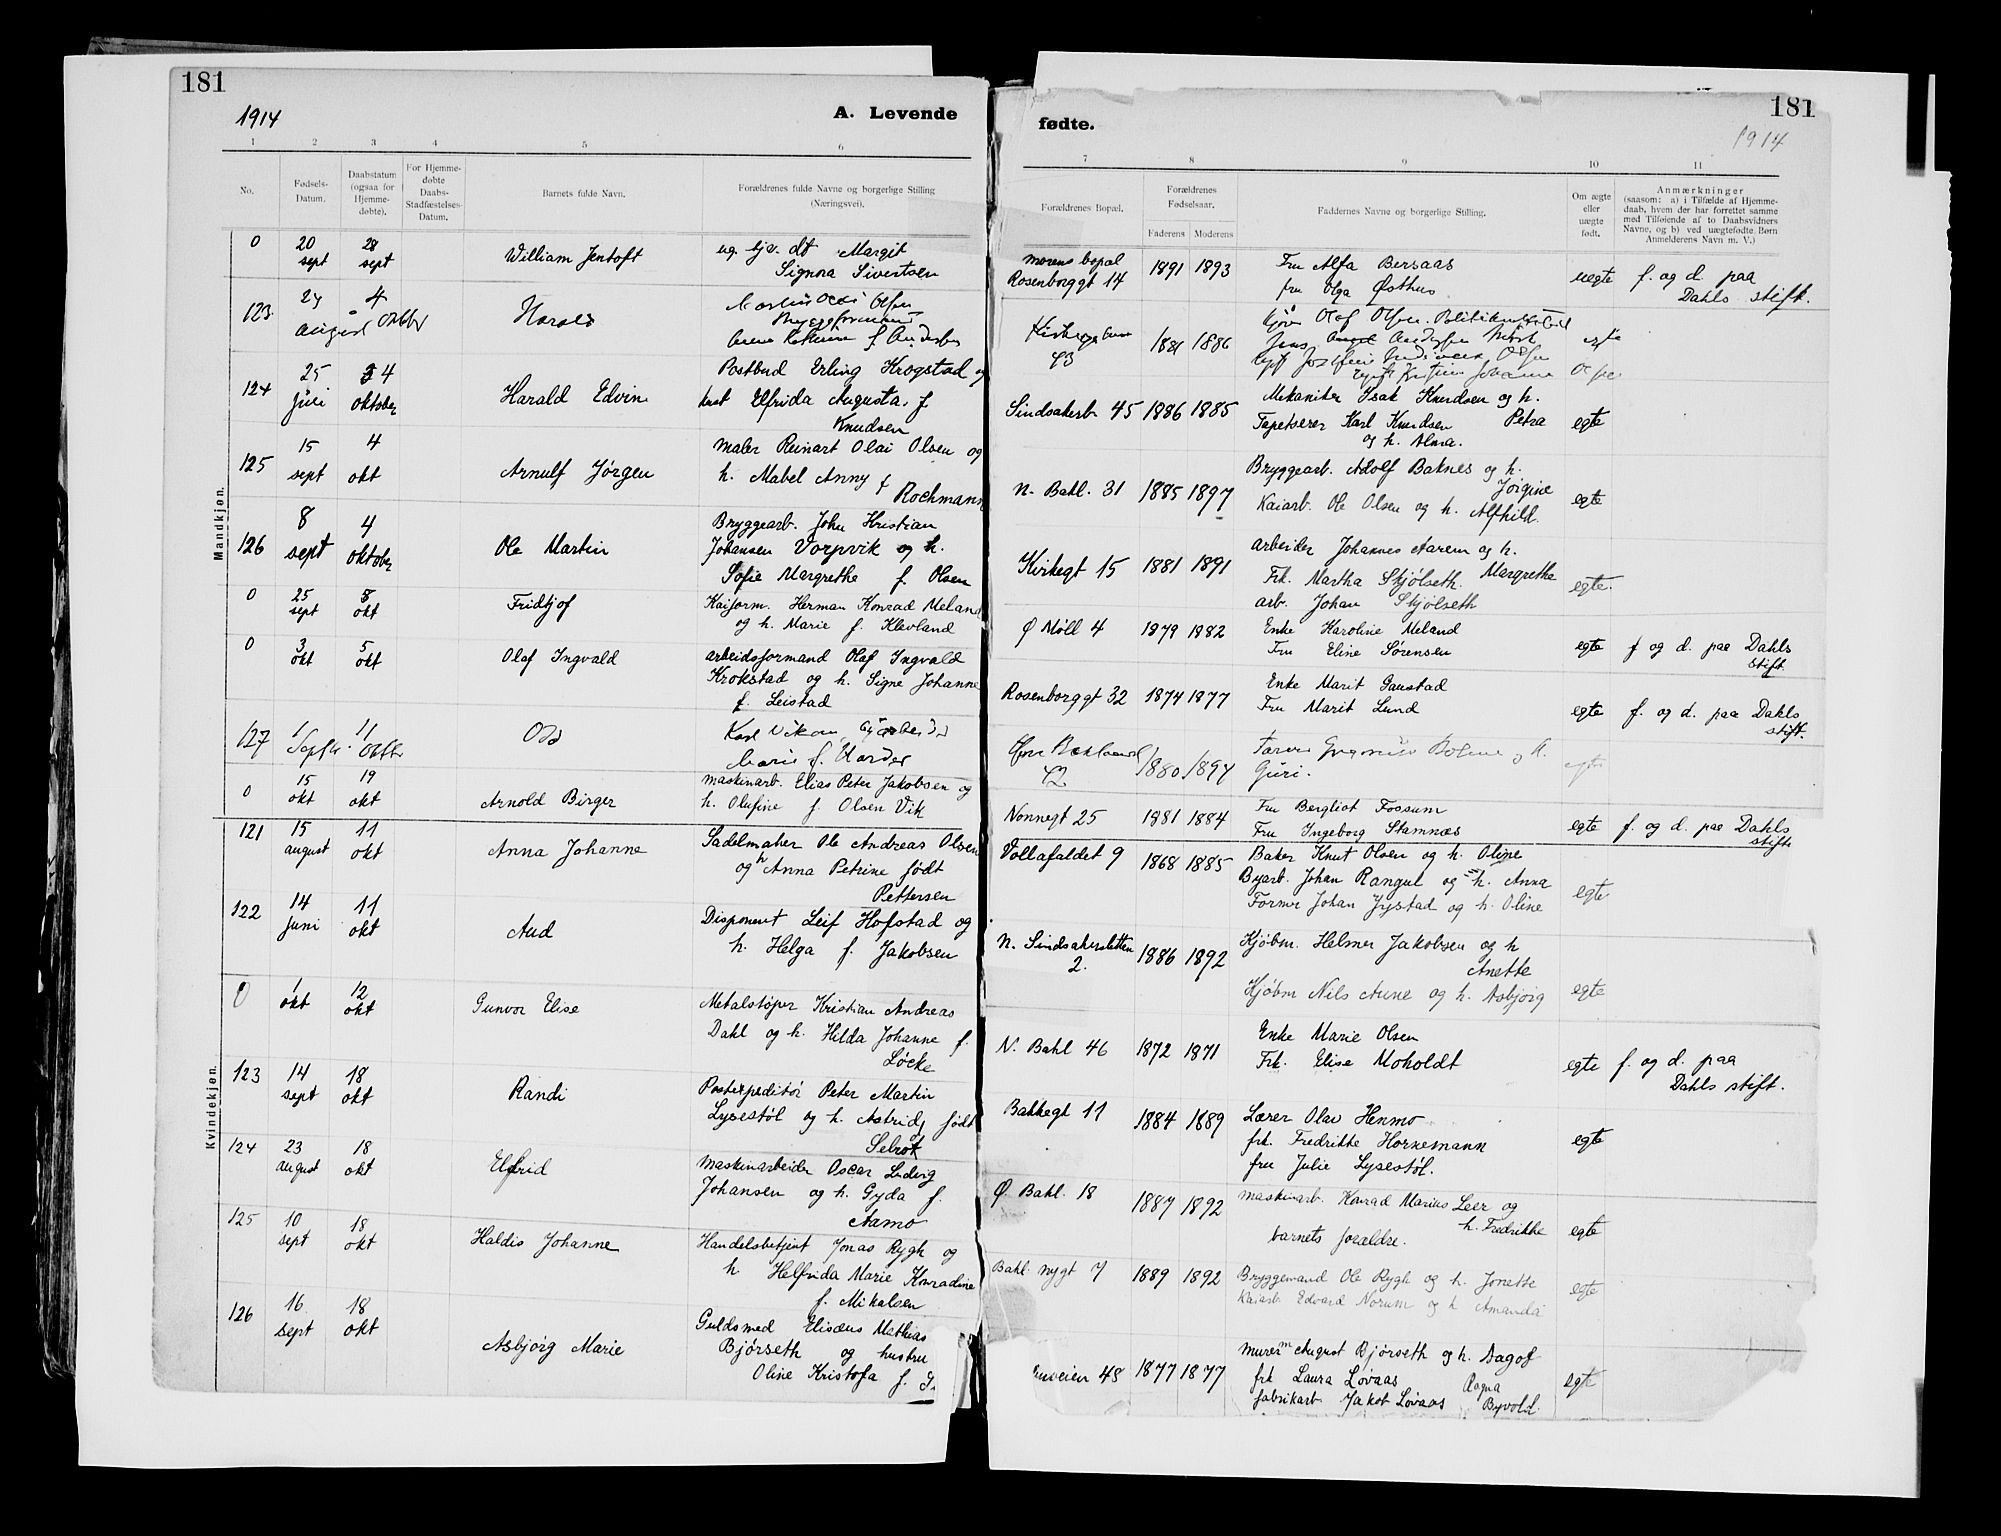 181
1914
A. Levende
1 2 3 4 5 6
No.
Fødsels-
Datum.
Daabstatum
(ogsaa for
Hjemme-
døbte).
For Hjemme-
døbte
Daabs-
Stadfæstelses-
Datum.
Barnets fulde Navn.
Forældrenes fulde Navne og borgerlige Stilling
(Næringsvei).
Mandkjøn.
0 20 sept 28 sept William Jentoft ug. tjv. dt Margit
Signora Sivertsen
123 24 august 4 Harald
124 25 juli 4 oktober Harald Edvin Postbud Erling Krogstad og
hust Elfrida Augusta f
Knudsen
125 15 sept 4 okt Arnulf Jørgen maler Reinart Olai Olsen og
h. Mabel Anny f
Rochmann
126 8 sept 4 oktober Ole Martin Bryggearb. John Kristian
Johansen Vorpvik og h.
Sofie Margrethe f. Olsen
0 25 sept 8 okt Fridtjof Kaiform. Herman Konrad Meland
og h. Marie f. Klevland
0 3 okt 5 okt Olaf Ingvald arbeidsformand Olaf Ingvald
Krokstad og h. Signe Johanne
f. Leistad
127 1 Septbr. 11 Odd Karl
Marie f. Harder
0 15 okt 19 okt Arnold Birger maskinarb. Elias Peter Jakobsen og
h. Olufine f Olsen Vik
Kvindekjøn.
121 15 august 11 okt Anna Johanne Sadelmaker Ole Andreas Olsen
og h Anna Petrine født
Pettersen
122 14 juni 11 okt Aud Disponent Leif Hofstad og
h. Helga f. Jakobsen
0 1 okt 12 okt Gunvor Elise Metalstøper Kristian Andreas
Dahl og h. Hilda Johanne f.
Løcke
123 14 sept 18 okt Randi Postexpeditør Peter Martin
Lysestøl og h. Astrid født
Selrot
124 23 august 18 okt Elfrid maskinarbeider Oscar Ludvig
Johansen og h. Gyda f.
Aamo
125 10 sept 18 okt Haldis Johanne Handelsbetjent Jonas Rygh og
h. Helfrida Marie Konradine
f. Mikalsen
126 16 sept 18 okt Asbjørg Marie Guldsmed Elisæus Mathias
Bjørseth og hustru
Oline Kristofa f.
181
1914
fødte.
7 8 9 10 11
Forældrenes Bopæl.
Forældrenes
Fødselsaar.
Faderens Moderens
Faddernes Navne og borgerlige Stilling.
Om ægte
eller
uægte
født.
Anmærkninger
(saasom: a) i Tilfælde af Hjemme-
daab, hvem der har forrettet samme
med Tilføiende af to Daabsvidners
Navne, og b) ved uægtefødte Børn
Anmelderens Navn m. V.)
morens bopæl
Rosenborggt 14 1891 1893 Fru Alfa Bersaas
fru Olga Østhus uegte f. og d. paa
Dahls stift.
43 1881 1886 Olaf Olsen
egte
Sindsakerb 45 1886 1885 Mekaniker Isak Knudsen og h.
Petra
Tapetserer Karl Knudsen
og h. Alma. egte
N. Bakl. 31 1885 1897 Bryggearb. Adolf Baknes og h.
Jørgine
Kaiarb. Ole Olsen og h. Alfhild. egte
Kirkegt 15 1881 1891 arbeider Johannes Aarem og h.
Margrethe
Frk. Martha Skjølseth.
arb. Johan Skjølseth egte.
Ø Møll 4 1879 1882 Enke Karoline Meland
Fru Eline Sørensen egte f og d. paa Dahls
stift
Rosenborggt 32 1874 1877 Enke Marit Gaustad
Fru Marit Lund egte f. og d. paa Dahls
stift.
42 1880 1894
Guri. egte
Nonnegt 25 1881 1884 Fru Bergliot Fossum
Fru Ingeborg Stamnæs egte f. og d. paa Dahls
stift
Vollafaldet 9 1868 1885 Baker Knut Olsen og h. Oline
Byarb. Johan Rangul og h. Anna
Former Johan Jystad og h. Oline egte
N. Sindsakersletten
2. 1886 1892 Kjøbm. Helmer Jakobsen og h
Anette
Kjøbm Nils Aune og h. Asbjørg egte
N. Bakl 46 1872 1871 Enke Marie Olsen
Frk. Elise Moholdt egte f. og d. paa
Dahls stift.
Bakkegt 11 1884 1889 Lærer Olav Henmo
frk. Fredrikke Hornemann
fru Julie Lysestøl. egte
Ø. Bakl. 18 1887 1892 maskinarb. Konrad Marius Leer og
h. Fredrikke
barnets forældre. egte
Bakl. nygt 7 1889 1892 Bryggemand Ole Rygh og h. Jonette
Kaiarb Edvard Norum og h Amanda egte
48 1877 1877 murerm August Bjørseth og h. Dagof
frk Laura Løvaas Ragna
fabrikarb Jakob Løvaas Byvold. egte